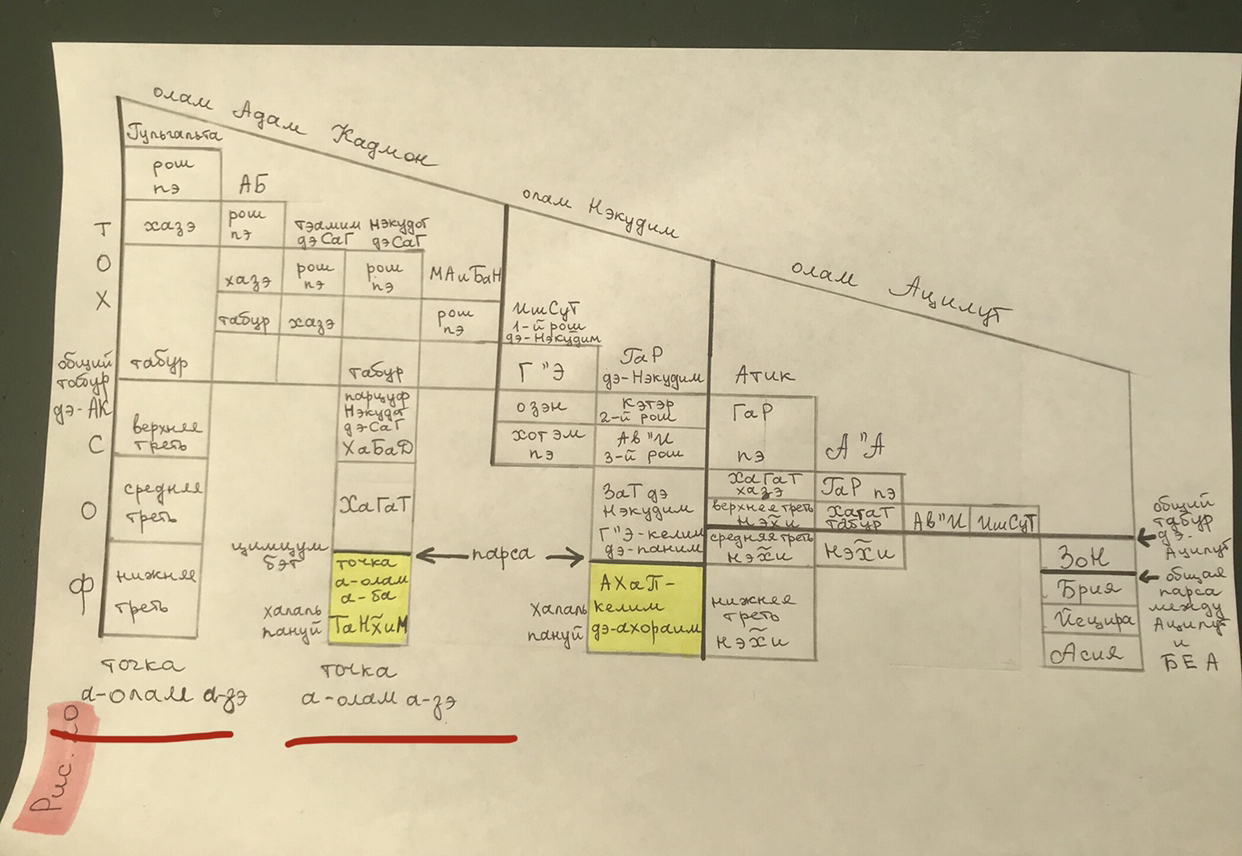 олам Адам Кадмон
олам Нэкудим
олам Ацилут
Гульгальта
рош
пэ
хазэ
табур
верхняя
треть
средняя
треть
нижняя
треть
Т
О
Х
общий
табур
дэ-АК
С
О
Ф
АБ
рош
пэ
хазэ
табур
тэамим
дэ СаГ
рош
пэ
хазэ
Нэкудот
дэ СаГ
рош
пэ
табур
парцуф
Нэкудот
дэ СаГ
ХаБаД
ХаГаТ
цимцум
бэт
точка
а-олам
а-ба
ТаНХиМ
халаль
пануй
МАиБаН
рош
пэ
парса
ИшСуТ
1-й рош
дэ-Нэкудим
Г"Э
озэн
хотэм
пэ
ГаР
дэ-Нэкудим
Кэтэр
2-й рош
Ав"И
3-й рош
ЗаТ дэ
Нэкудим
Г"Э-келим
дэ-паним
АХаП-
келим
дэ-ахораим
халаль
пануй
Атик
ГаР
пэ
ХаГаТ
хазэ
верхняя треть
НэХи
средняя треть
НэХи
нижняя
треть
НэХи
А"А
ГаР пэ
ХаГаТ
табур
НэХи
Ав"И
ИшСуТ
ЗоН
Брия
Йецира
Асия
общий
табур
дэ-
Ацилут
общая
парса
между
Ацилут
и
БЕА
точка
а-олам а-зэ
точка
а-олам а-зэ
Рис.